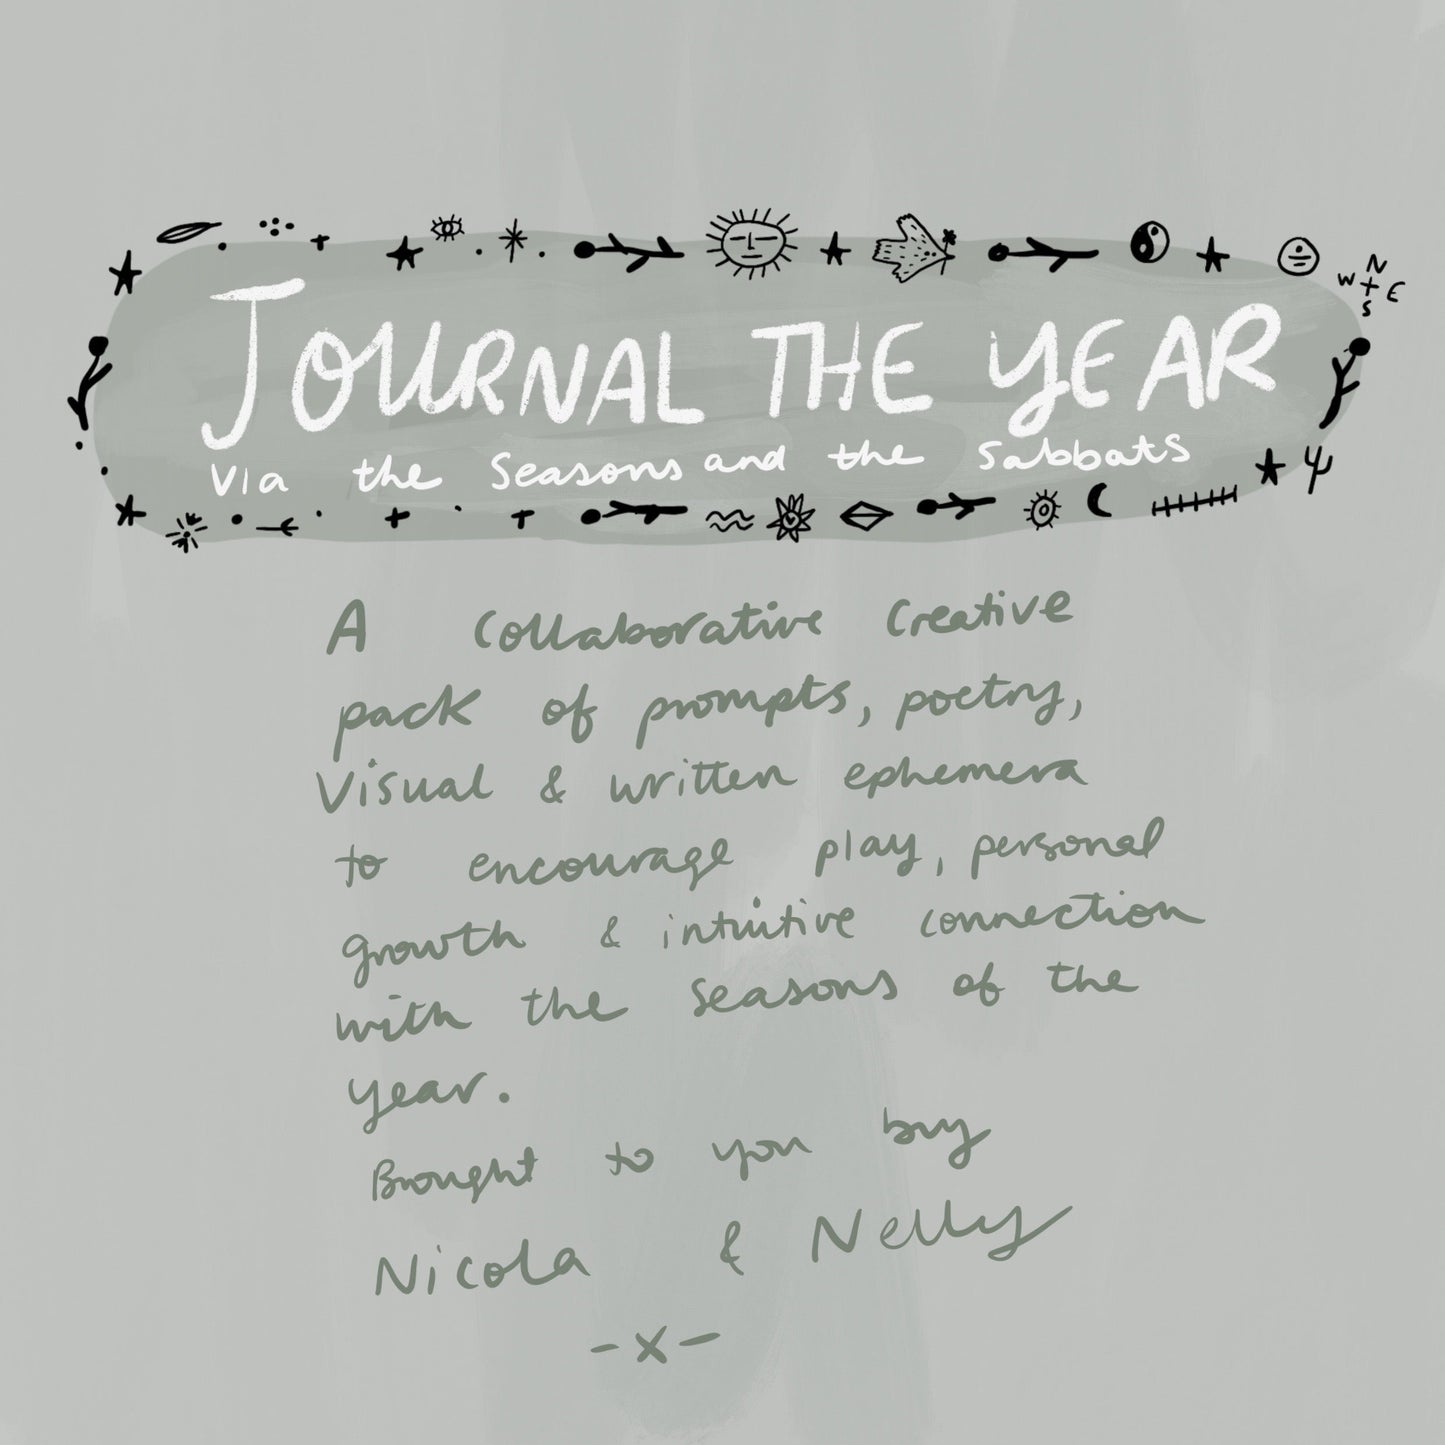 JOURNAL THE YEAR
Via the Seasons and the Sabbats
N
W E
S
A Collaborative Creative
pack of prompts, poetry,
Visual & written ephemera
to encourage play, personal
growth & intuitive connection
with the seasons of the
year.
Brought to you buy
Nicola & Nelly
- x -